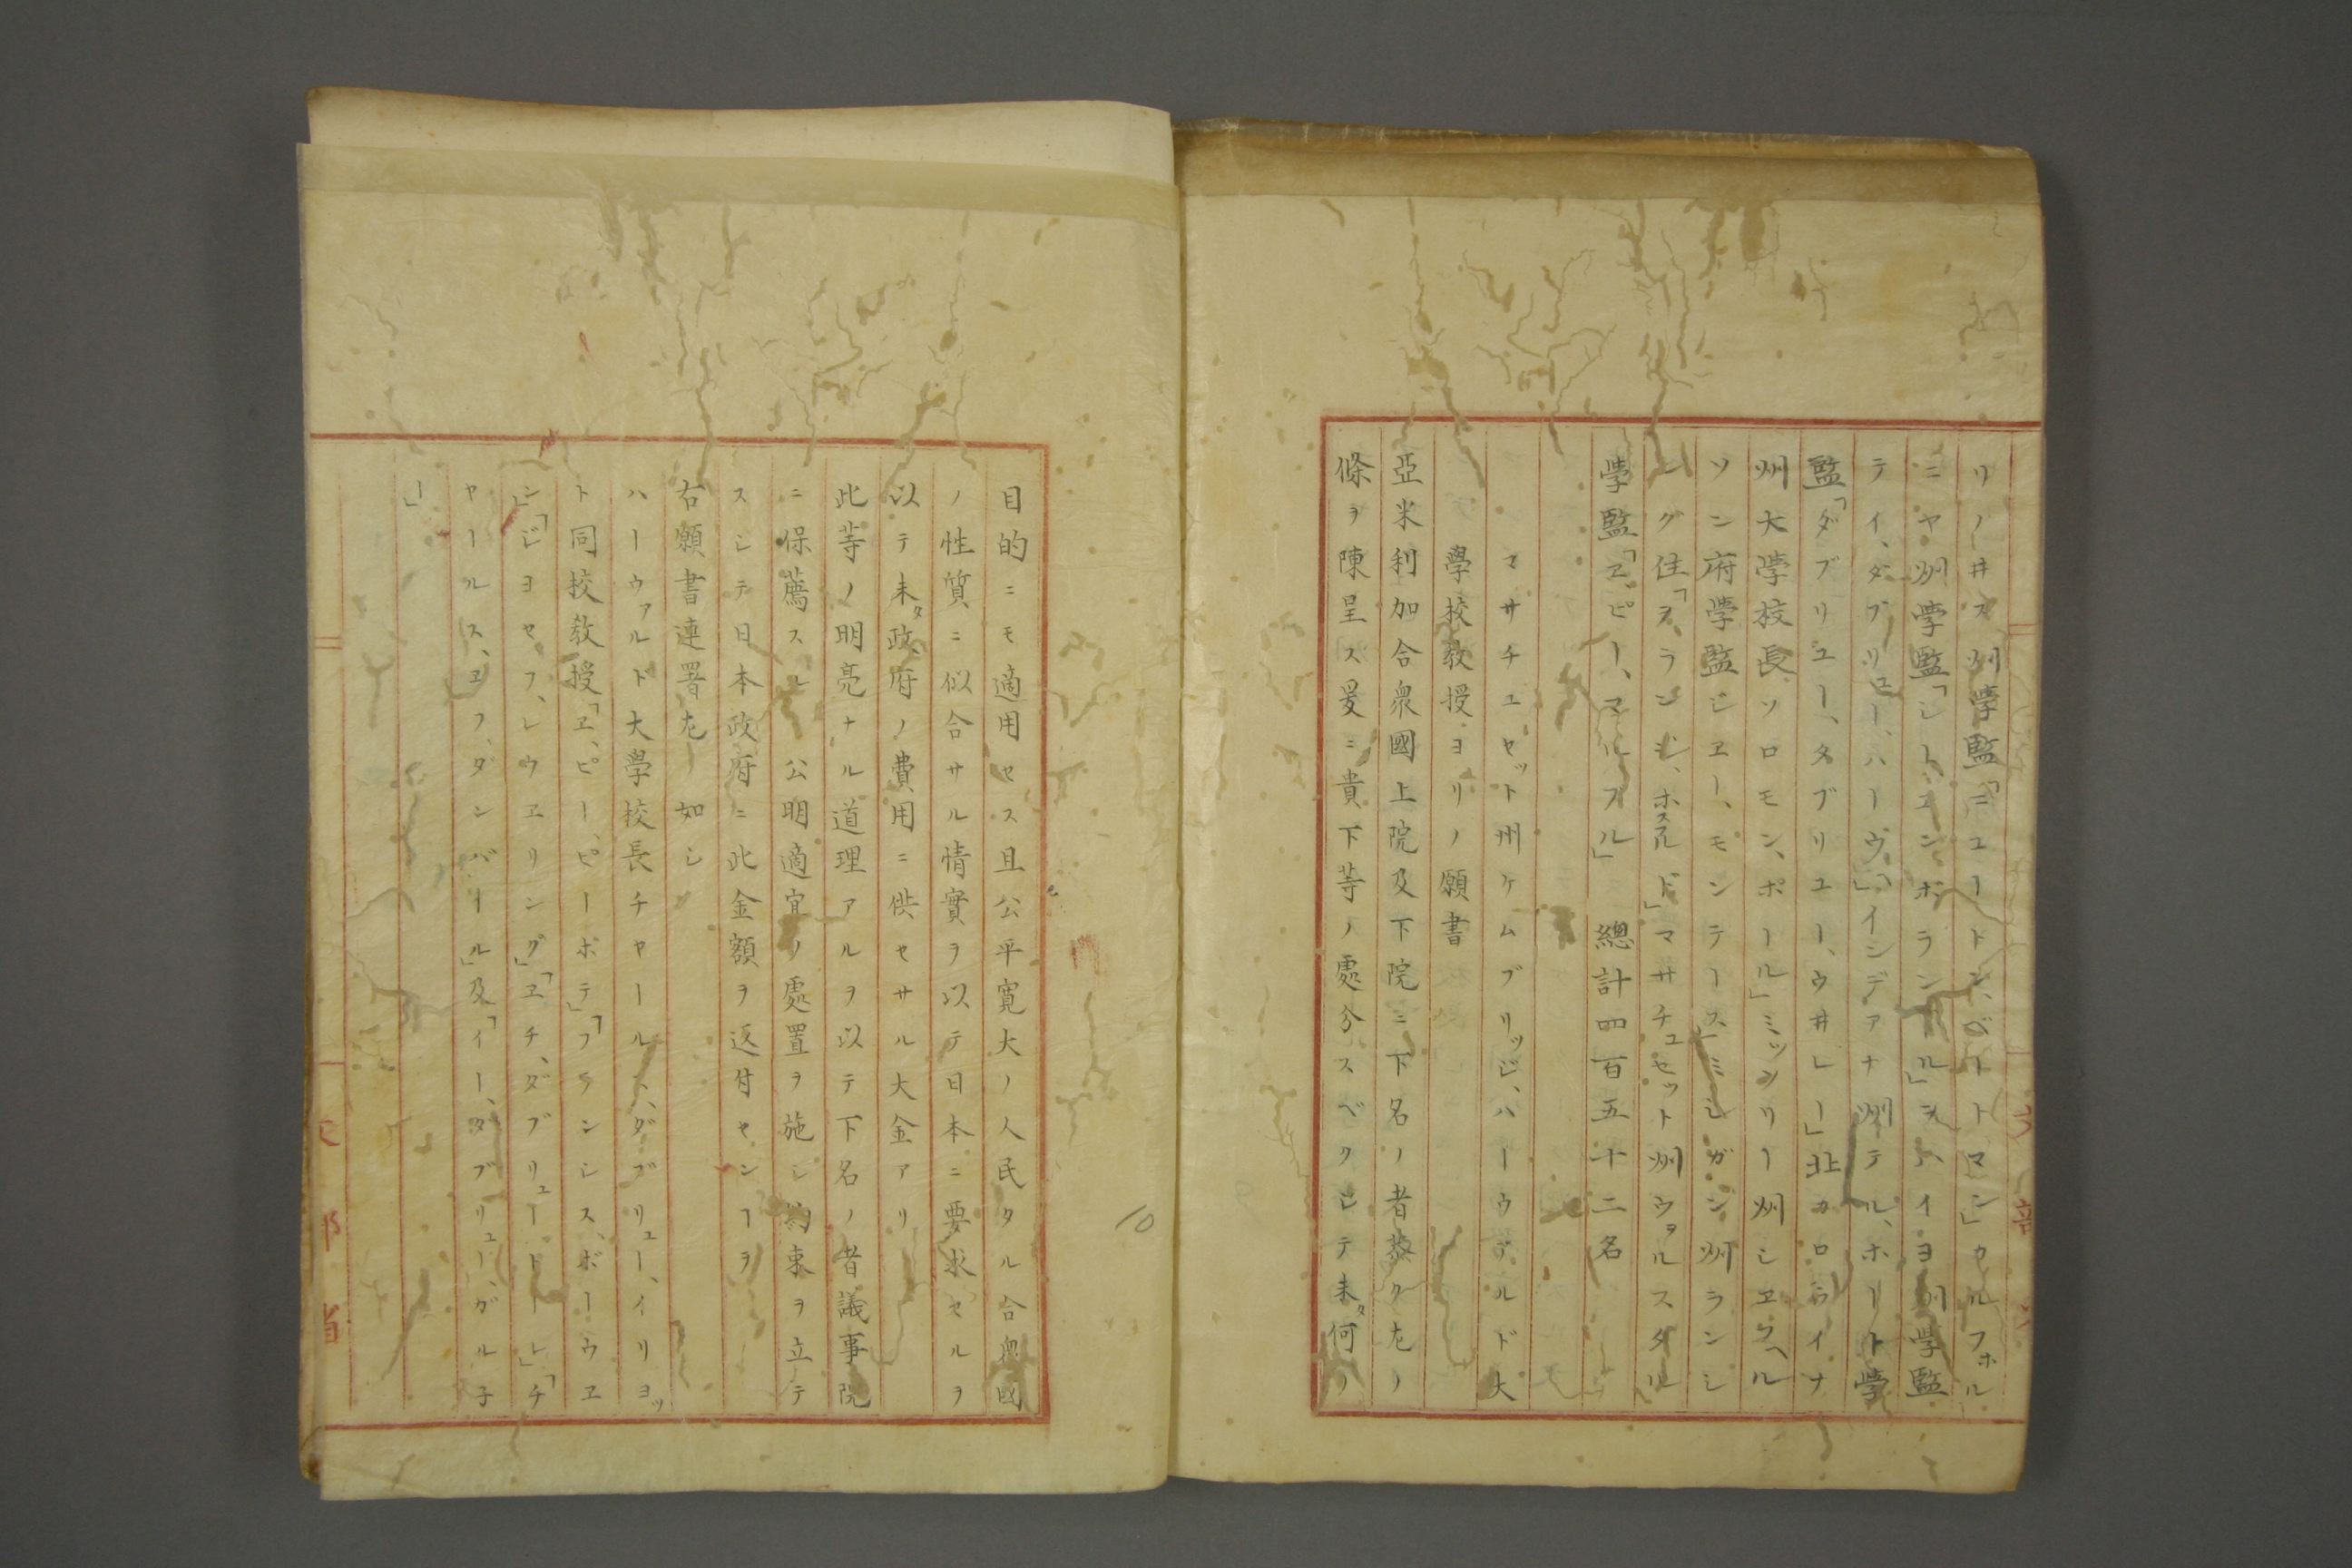 リノ井ス州學監「ニユートン、ベートマン」カルフホル
ニヤ州學監「シトエンボランドル」ヲハイヨ州學監
テイ、ダブリユー、ハーヴ」「インデアナ州テル、ホート學
監「ダブリユー、タブリユー、ウ井レー」北カロライナ
州大學校長ソロモン、ポール」ミッソリー州シエクヘル
ソン府學監ビエー、モンテース」ミシガン州ランシ
ング住「ヲ、ランジ、ホスホルド」マサチュセット州ウヲルスタル
學監「エ、ピー、マルフル」 總計四百五十二名
マサチユセット州ケムブリッジ、ハーウアルド大
學校敎授ヨリノ願書
亞米利加合衆國上院及下院ニ下名ノ者敬ク左ノ
條ヲ陳呈ス爰ニ貴下等ノ處分スベクシテ未タ何ノ
目的ニモ適用セス且公平寛大ノ人民タル合衆國
ノ性質ニ似合サル情實ヲ以テ日本ニ要求セルヲ
以テ未タ政府ノ費用ニ供セサル大金アリ
此等ノ明亮ナル道理アルヲ以テ下名ノ者議事院
ニ保薦スルニ公明適宜ノ處置ヲ施シ約束ヲ立テ
スシテ日本政府ニ此金額ヲ返付センヿヲ
右願書連署左ノ如シ
ハーウァルド大學校長チヤールス、ダブリュー、イリヨッ
ト同校敎授「エ、ピー、ピーボデ」「フランシス、ボーウエ
ン」「ジヨセフ、レウエリング」「エチ、ダブリュートーレ」「チ
ヤールス、エフ、ダンバール」及「イー、ダブリュー、ガル子
ー」
文部省
10